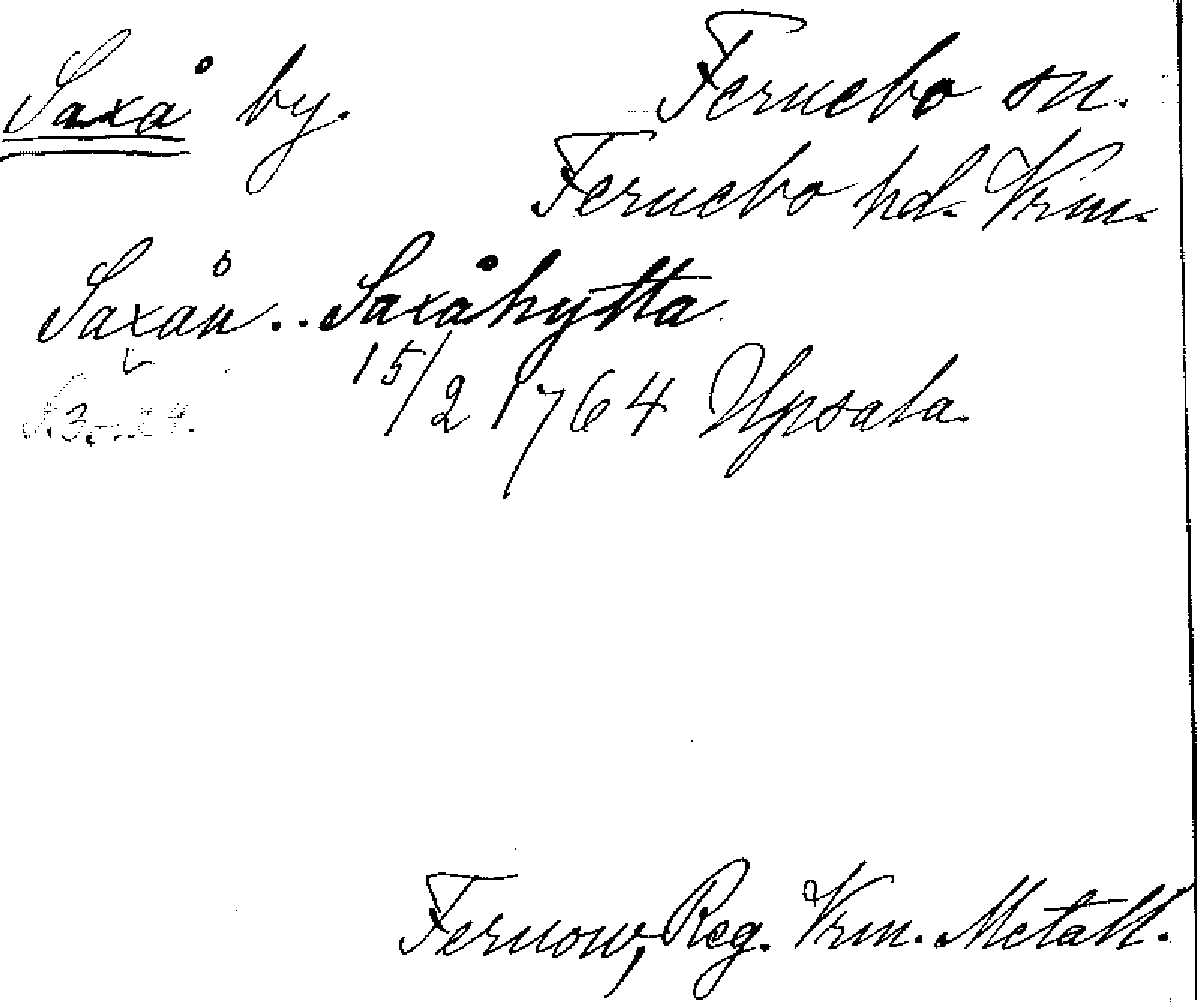 Saxå by. Fernebo sn.
Fernebo hd. Vrm.
Saxån .. Saxåhytta
15/2 1764 Upsala.
Fernow, Reg. Vrm. Metall.